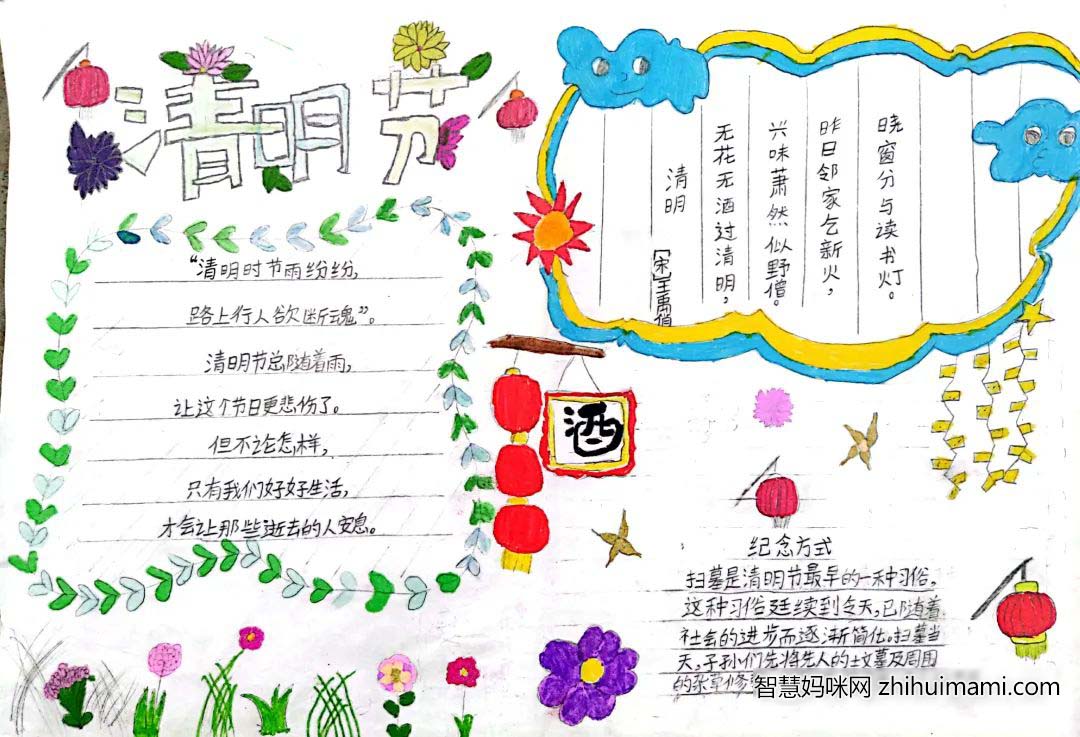 清明节
“清明时节雨纷纷,
路上行人欲断魂”。
清明节总随着雨,
让这个节日更悲伤了。
但不论怎样,
只有我们好好生活,
才会让那些逝去的人安息。
清明
[宋]王禹偁
无花无酒过清明,
兴味萧然似野僧。
昨日邻家乞新火,
晓窗分与读书灯。
酒
纪念方式
扫墓是清明节最早的一种习俗,
这种习俗延续到今天,已随着
社会的进步而逐渐简化。扫墓当
天,子孙们先将先人的坟墓及周围
的杂草修
智慧妈咪网 zhihuimami.com